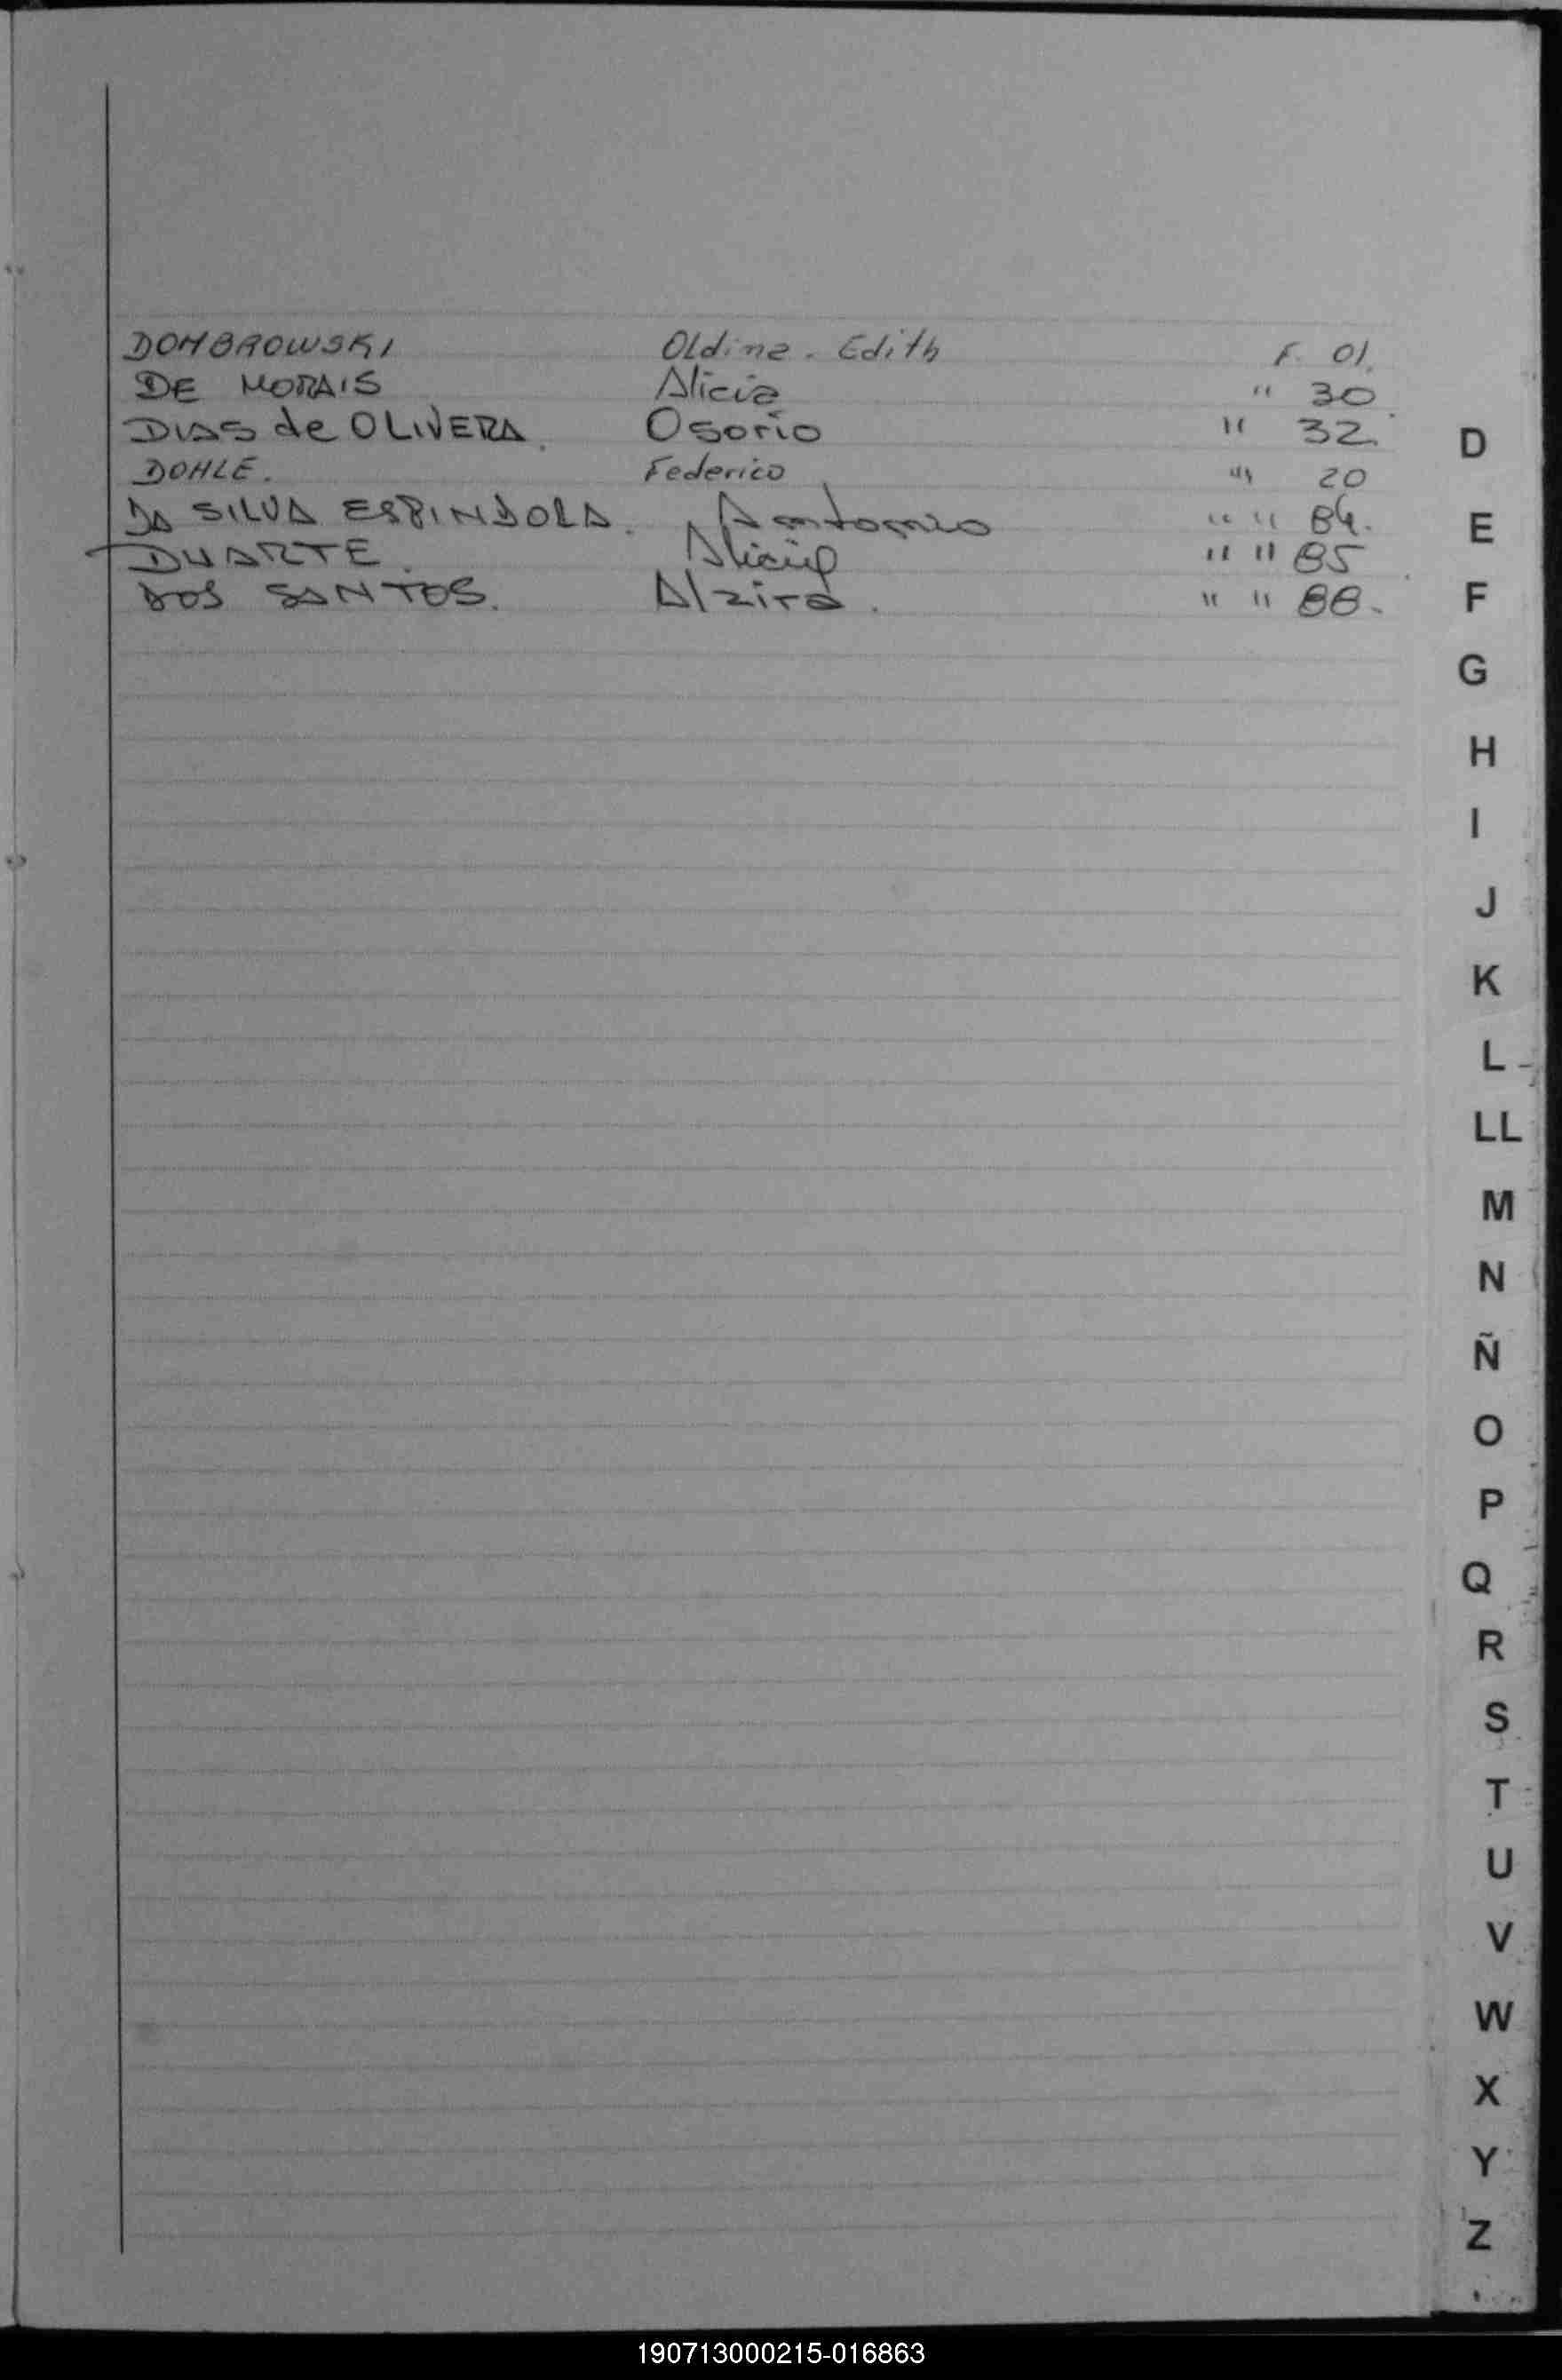 DOMBROWSKI Oldina. Edith F. 01.
DE MORAIS Alicia " 30
DIAS de OLIVERA. Osorio " 32.
DOHLE. Federico " 20
DA SILVA ESPINDOLA. Antonio " " 84.
DUARTE. Alicia " " 85
DOS SANTOS. Alzira. " " 88.
D
E
F
G
H
I
J
K
L
LL
M
N
Ñ
O
P
Q
R
S
T
U
V
W
X
Y
Z
190713000215-016863